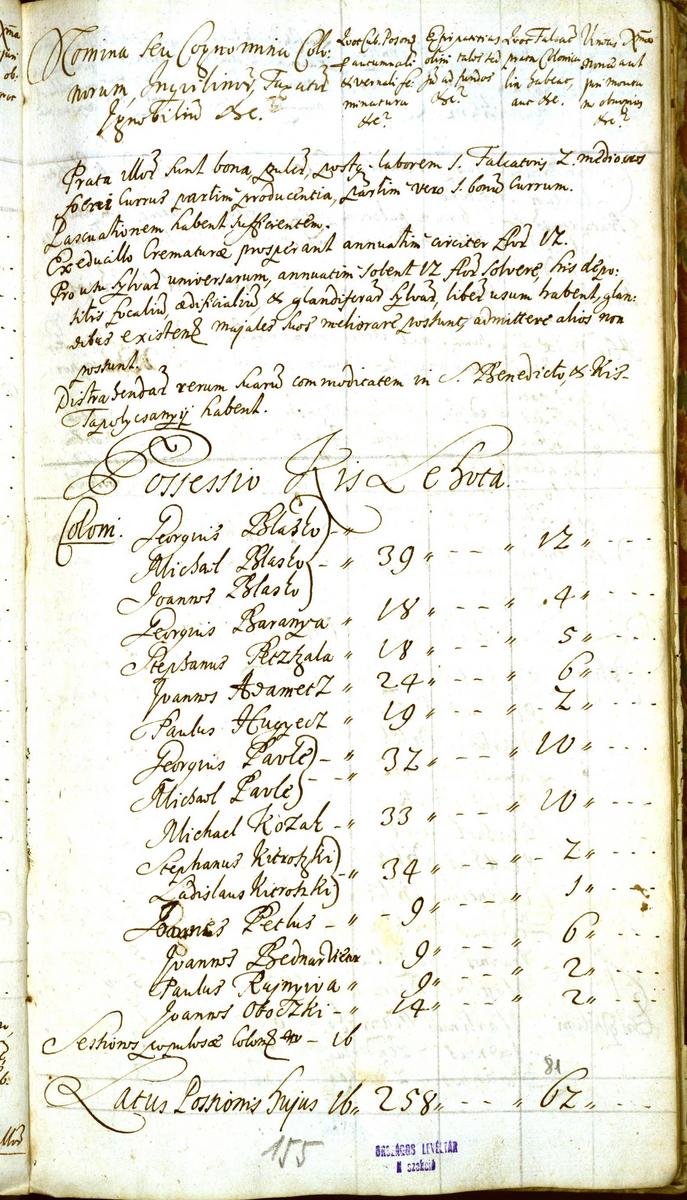 Nomina seu Cognomina Colo-
norum, Inquilinor, Taxatū
Ignobiliū &c.
Quot Cub. Poson.
& autumnali
& vernali se-
minatura
&c?
olim tales ted
ad fundos
&c?
Quot Falcatū
prata Colonica
habeat,
aut &c.
Unius
nonū aut
&c?
Prata illor sunt bona, laborem 1. Falcatoris 2 mediocres
foeni Currus partim producentia, partim vero 1. bonū Currum.
Pascuationem habent sufficientem.
Ex educillo Crematurae prosperant annuatim circiter flor 12.
Pro usu sylvar universarum, annuatim solent 12 flor solvere, his depo-
sitis focaliū, aedificaliū & glandiferar sylvar, liber usum habent, glan-
dibus existent majales suos meliorare possunt, admittere alios non
possunt.
Distrahendar rerum suarū commoditatem in S. Benedicto, & Kis-
Tapolycsany habent.
Possessio Kis Lehota.
Coloni. Georgius Blasko
Michael Blasko 39 12
Joannes Blasko
Georgius Baranya 18 4
Stephanus Petzhala 18 5
Joannes Adametz 24 6
Paulus Hugyecz 19 2
Georgius Pavle 32 10
Michael Pavle
Michael Kozak 33 10
Stephanus Kitroszki 34 2
Ladislaus Kitroszki
Petlus 9 1
Joannes Bednar 9 6
Paulus Rajnyiva 9 2
Joannes Oboczki 14 2
Sessiones populosae Colonor 16
81
Latus Possionis hujus 16 258 62
155
ORSZÁGOS LEVÉLTÁR
N szekció